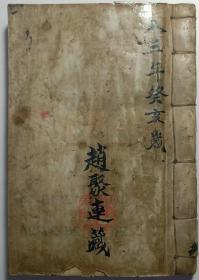 三年癸亥歲
趙聚連藏